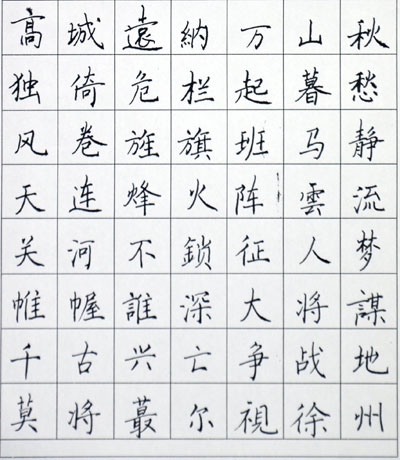 高城遠納万山秋
独倚危栏起暮愁
风卷旌旗班马静
天连烽火阵雲流
关河不鎖征人梦
帷幄誰深大将謀
千古兴亡争战地
莫将蕞尔視徐州